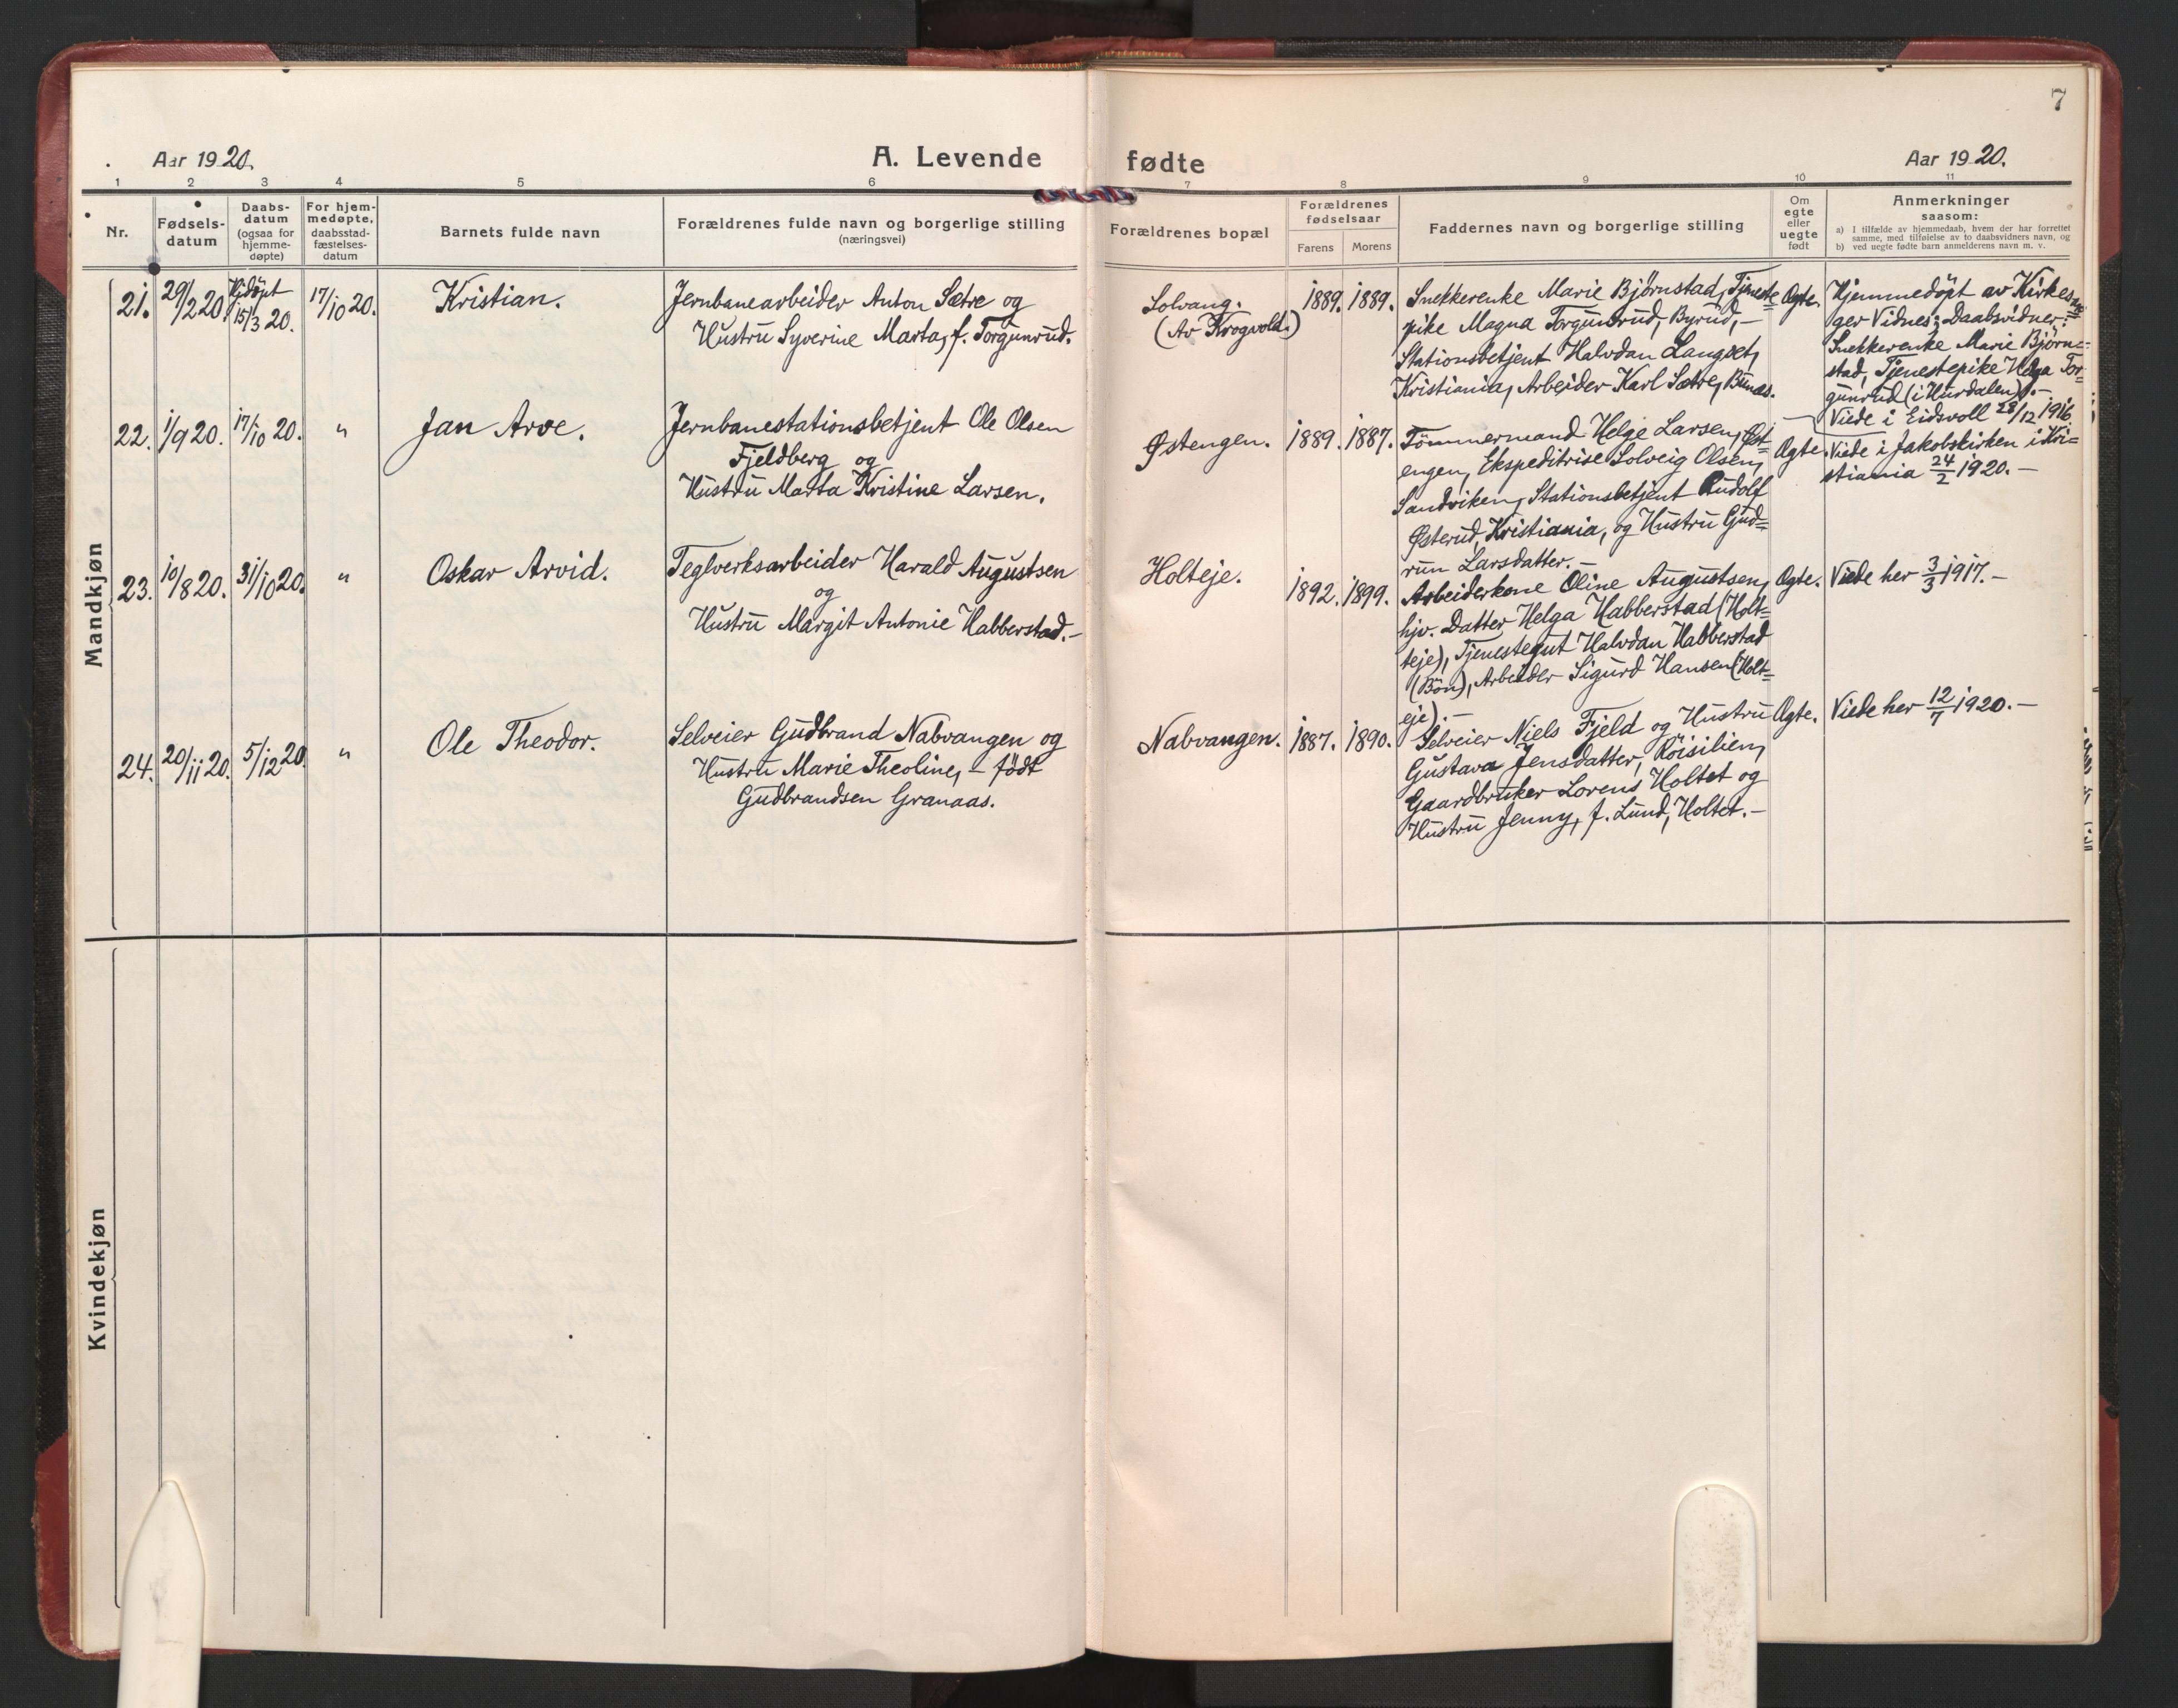 7
Aar 1920.
A. Levende fødte
Aar 1920.
1 2 3 4 5 6 7 8 9 10 11
Nr.
Fødsels-
datum
Daabs-
datum
(ogsaa for
hjemme-
døpte)
For hjem-
medøpte,
daabsstad-
fæstelses-
datum
Barnets fulde navn
Forældrenes fulde navn og borgerlige stilling
(næringsvei)
Forældrenes bopæl
Forældrenes
fødselsaar
Farens Morens
Faddernes navn og borgerlige stilling
Om
egte
eller
uegte
født
Anmerkninger
saasom:
a) I tilfælde av hjemmedaab, hvem der har forrettet
samme, med tilføielse av to daabsvidners navn, og
b) ved uegte fødte barn anmelderens navn m. v.
Mandkjøn
21.
29/2 20.
Hjdöpt
15/3 20.
17/10 20.
Kristian.
Jernbanearbeider Anton Sætre og
Hustru Syverine Marta, f. Torgunrud.
Solvang.
(Av Krogvold.)
1889. 1889.
Snekkerenke Marie Björnstad, Tjeneste=
pike Magna Torgunrud, Byrud, —
Stationsbetjent Halvdan Langset,
Kristiania, Arbeider Karl Sætre, Bunes.
Ægte.
Hjemmedöpt av Kirkesan=
ger Vidnes; Daabsvidner:
Snekkerenke Marie Björn=
stad, Tjenestepike Helga Tor=
gunrud (i Hurdalen). —
Viede i Eidsvoll 28/12 1916
22.
1/9 20.
17/10 20.
"
Jan Arve.
Jernbanestationsbetjent Ole Olsen
Fjeldberg og
Hustru Marta Kristine Larsen.
Østengen.
1889. 1887.
Tömmermand Helge Larsen, Øst=
engen, Ekspeditrise Solveig Olsen,
Sandviken, Stationsbetjent Rudolf
Østerud, Kristiania, og Hustru Gud=
run Larsdatter. —
Ægte.
Viede i Jakobskirken i Kri=
stiania 24/2 1920. —
23.
10/8 20.
31/10 20.
"
Oskar Arvid.
Teglverksarbeider Harald Augustsen
og
Hustru Margit Antonie Habberstad. —
Holteje.
1892. 1899.
Arbeiderkone Oline Augustsen,
hjv. Datter Helga Habberstad (Holt=
teje), Tjenestegut Halvdan Habberstad
(Bön), Arbeider Sigurd Hansen (Holt=
eje). —
Ægte.
Viede her 3/3 1917. —
24.
20/11 20.
5/12 20.
"
Ole Theodor.
Selveier Gudbrand Nabvangen og
Hustru Marie Theoline, — födt
Gudbrandsen Granaas.
Nabvangen.
1887. 1890.
Selveier Niels Fjeld og Hustru
Gustava Jensdatter, Röisilien,
Gaardbruker Lorens Holtet og
Hustru Jenny, f. Lund, Holtet. —
Ægte.
Viede her 12/7 1920. —
Kvindekjøn